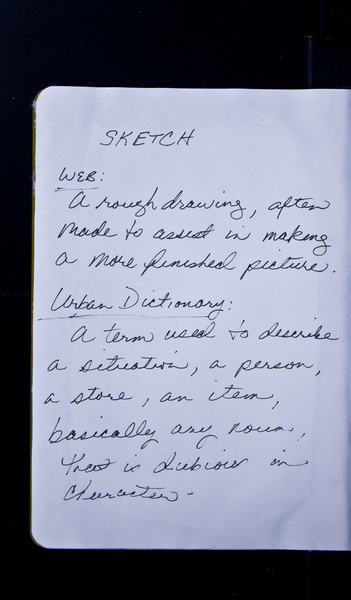 SKETCH
WEB:
A rough drawing, often
made to assist in making
a more finished picture.
Urban Dictionary:
A term used to describe
a situation, a person,
a store, an item,
basically any noun,
that is dubious in
character.